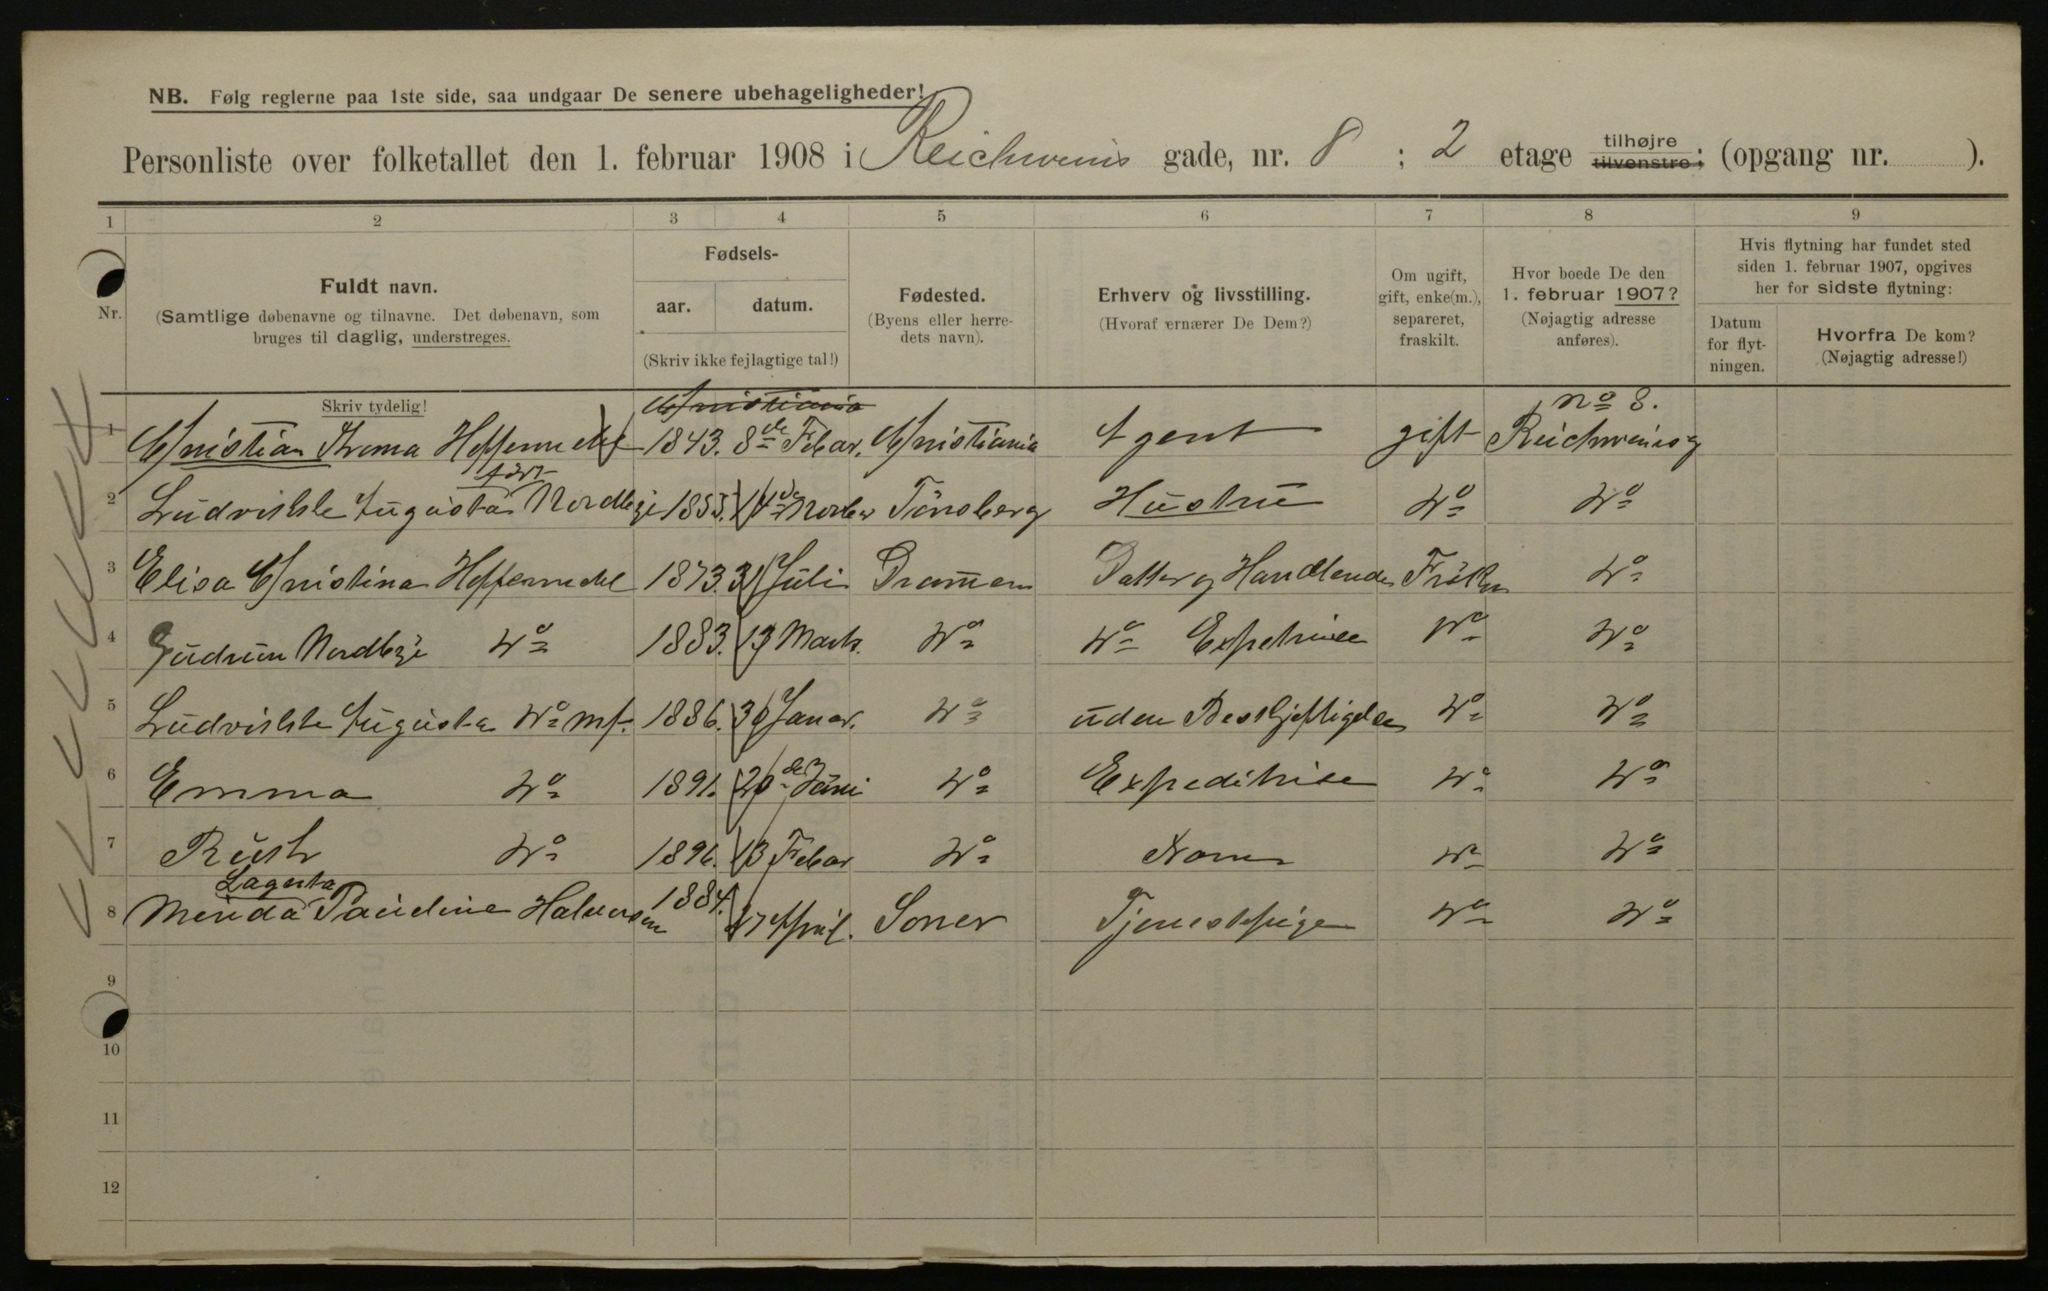 NB. Følg reglerne paa 1ste side, saa undgaar De senere ubehageligheder!
Personliste over folketallet den 1. februar 1908 i Reichweins gade, nr. 8 ; 2 etage tilhøjre tilvenstre; (opgang nr. ).
1 2 3 4 5 6 7 8 9
Nr.
Fuldt navn.
(Samtlige døbenavne og tilnavne. Det døbenavn, som
bruges til daglig, understreges.
Fødsels-
aar. datum.
(Skriv ikke fejlagtige tal!)
Fødested.
(Byens eller herre-
dets navn).
Erhverv og livsstilling.
(Hvoraf ernærer De Dem?)
Om ugift,
gift, enke(m.),
separeret,
fraskilt.
Hvor boede De den
1. februar 1907?
(Nøjagtig adresse
anføres).
Hvis flytning har fundet sted
siden 1. februar 1907, opgives
her for sidste flytning:
Datum
for flyt-
ningen.
Hvorfra De kom?
(Nøjagtig adresse!)
Skriv tydelig!
Christiania
No 8.
1 Christian 1843. 8de Febar. Christiania Agent gift Reichweinsg
født
2 Augusta 1853. 14de Tönsberg Hustru Do Do
3 Elisa Christina 1873. 31 Juli Drammen Datter og Handlende Frøken Do
4 Gudrun Do 1883. 13 Marts. Do Do Do Do
5 Augusta Do 1886. 30 Janar. Do uden Beskjeftigelse Do Do
6 Emma Do 1891. 20de Juni Do Expeditrise Do Do
7 Ruth Do 1896. 13 Febar Do Do Do
8 Paudine Halvorsen 1884. 17 April. Soner Tjenestepige Do Do
9
10
11
12